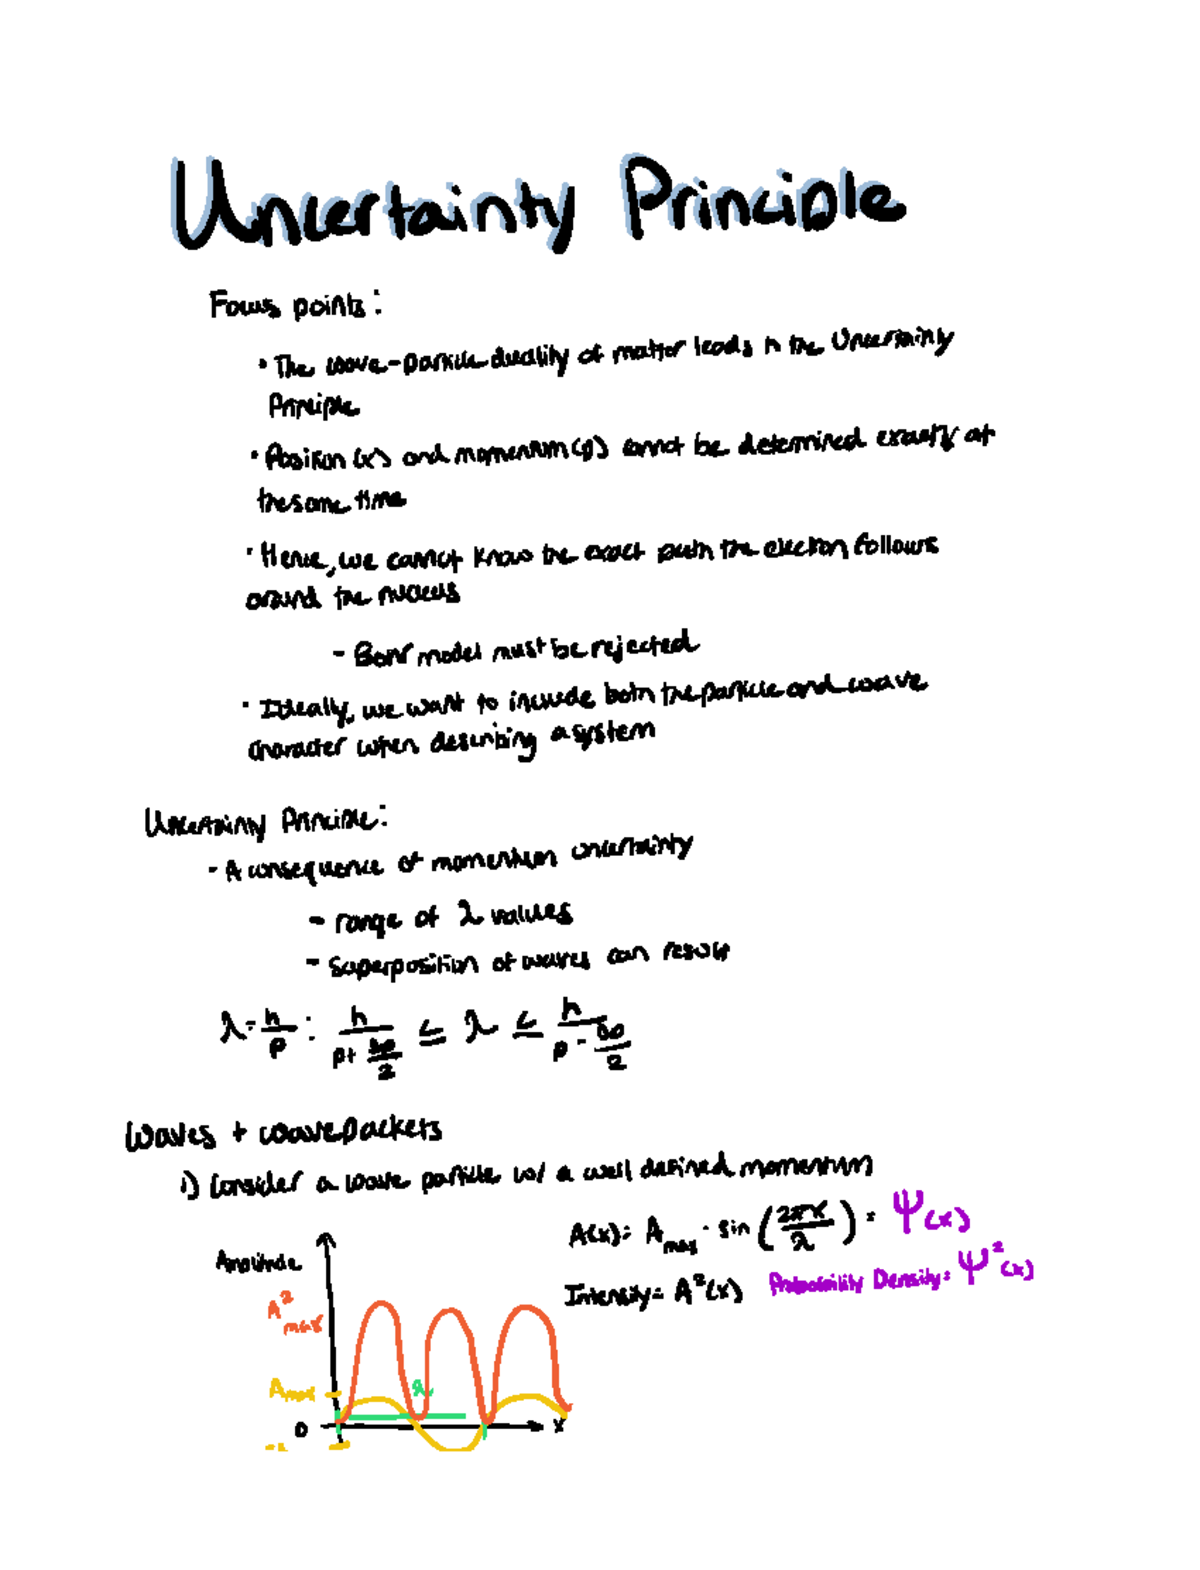 Uncertainty Principle
Focus points:
• The wave-particle duality of matter leads to the Uncertainty
Principle
• Position (x) and momentum (p) cannot be determined exactly at
the same time
• Hence, we cannot know the exact path the electron follows
around the nucleus
- Bohr model must be rejected
• Ideally, we want to include both the particle and wave
character when describing a system
Uncertainty Principle:
- A consequence of momentum uncertainty
- range of λ values
- Superposition of waves can result
λ = h/p : h/(p + Δp/2) ≤ λ ≤ h/(p - Δp/2)
Waves + wavepackets
1) Consider a wave particle w/ a well defined momentum
A(x) = A max · sin (2πx/λ) = Ψ(x)
Intensity = A²(x) Probability Density = Ψ²(x)
Amplitude
A² max
A max
λ
0
x